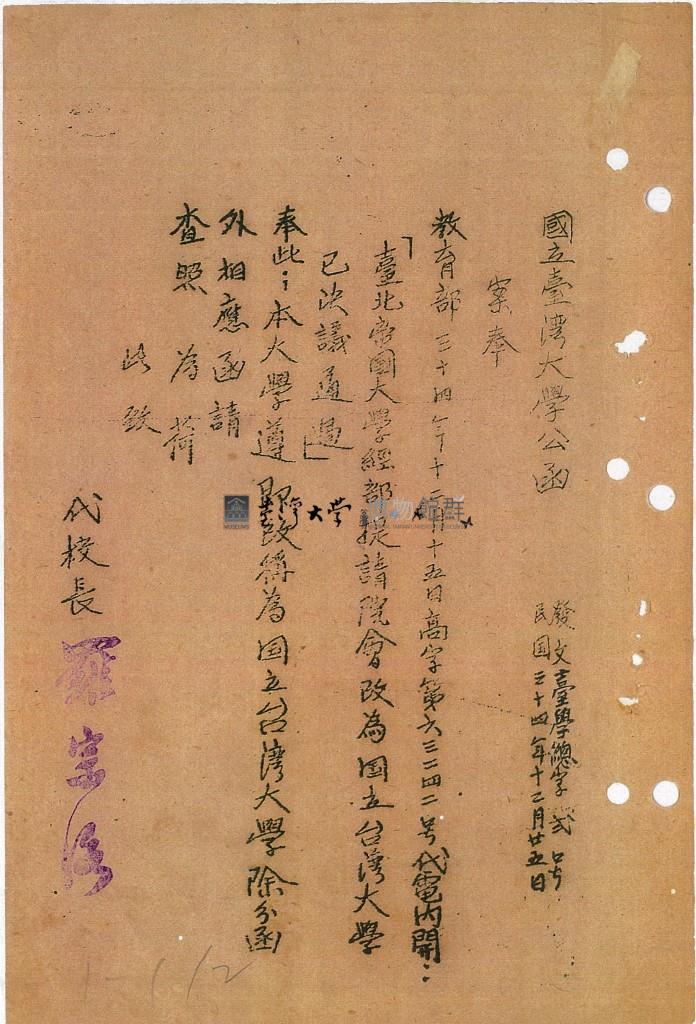 國立臺灣大學公函
發文臺學總字弍号
民国三十四年十二月廿五日
案奉
教育部三十四年十二月十五日高字第六三二四二号代電內開：
「臺北帝国大学經部提請院會改為國立台灣大學
已決議通過」
奉此；本大學遵即改稱為国立台灣大學除分函
外相應函請
查照為荷
此致
代校長羅宗洛
臺灣大學博物館群
1-112